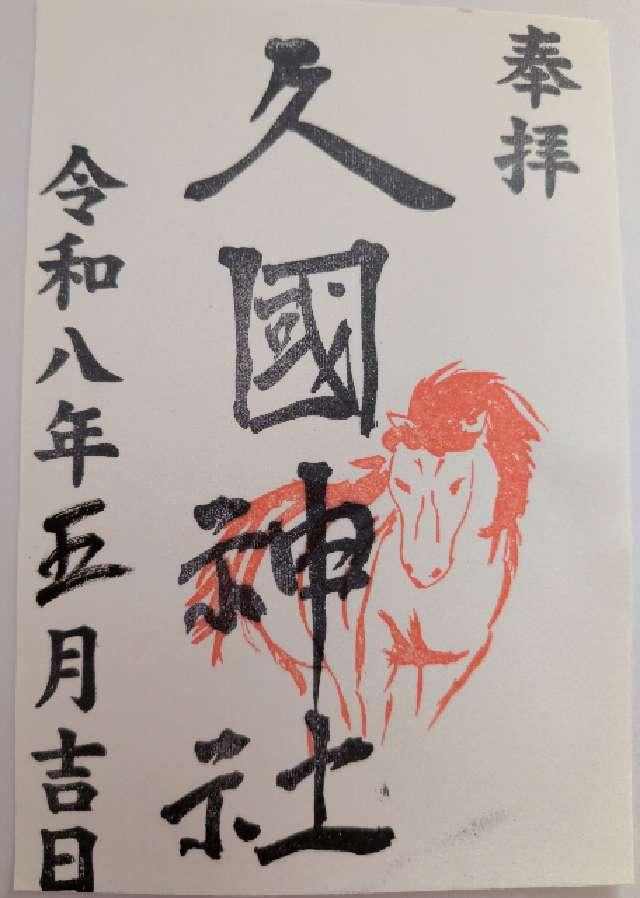 奉拝
久國神社
令和八年五月吉日